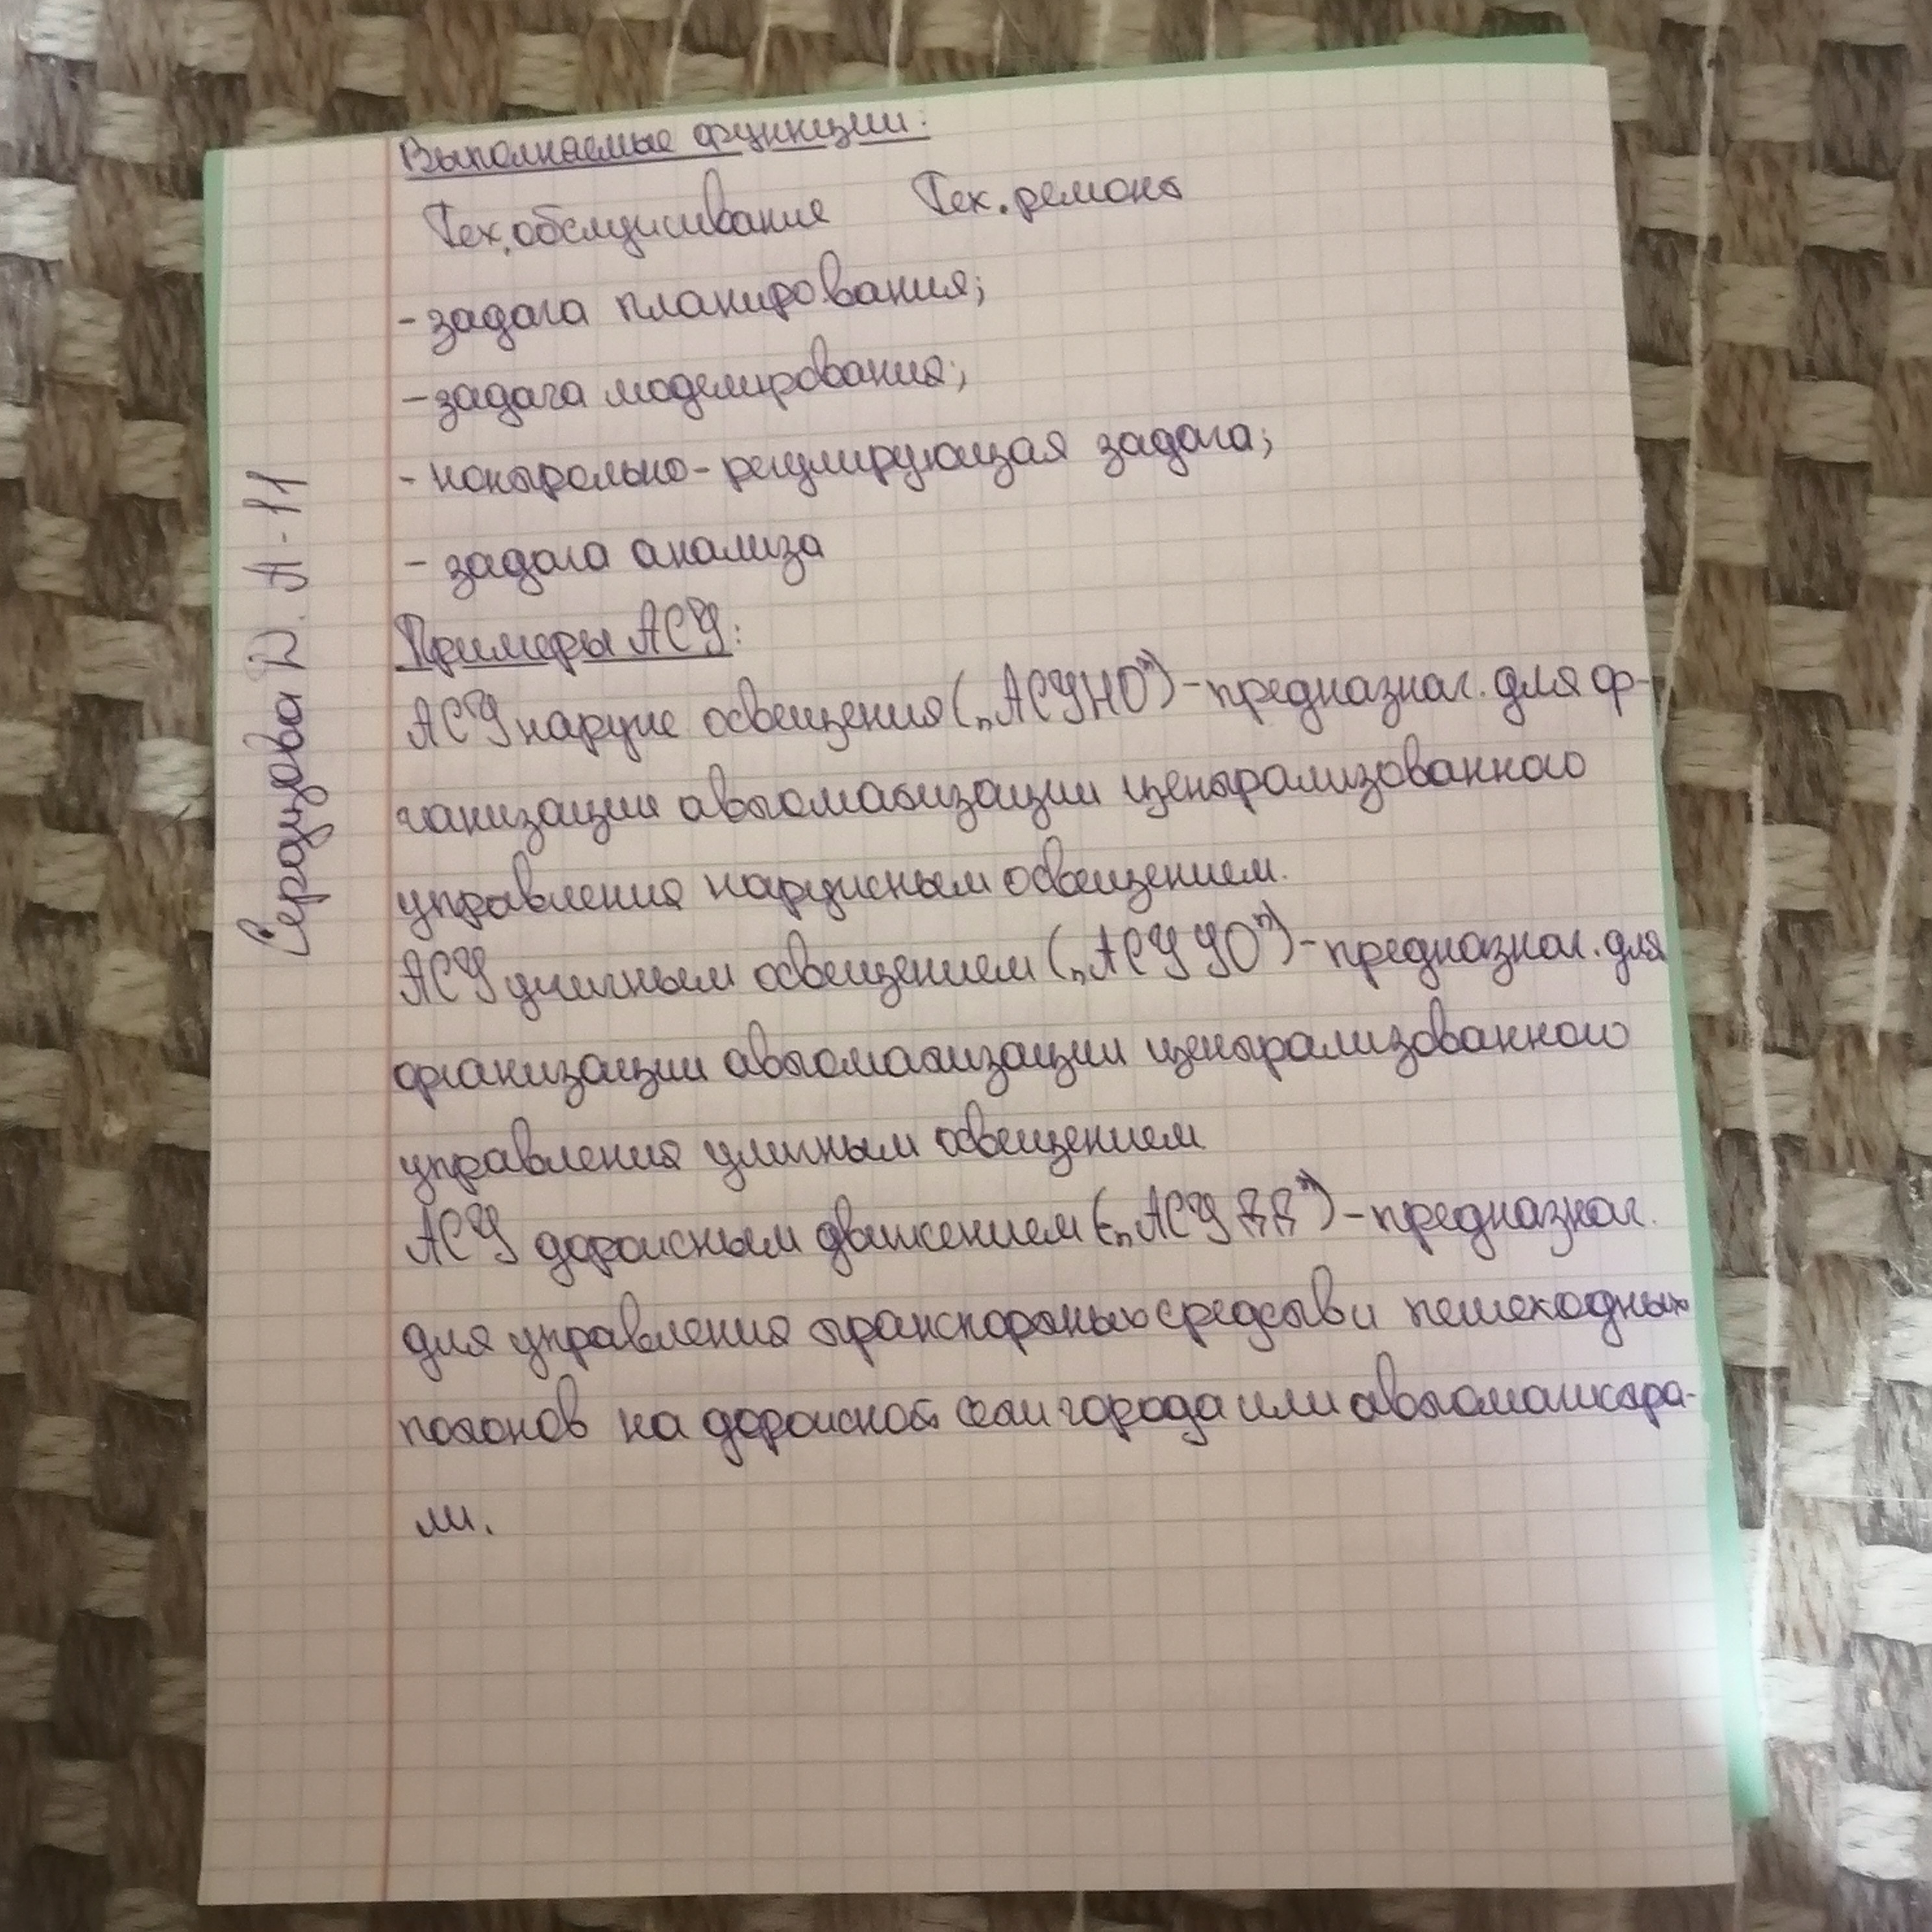 Выполняемые функции:
Тех.обслуживание Тех.ремонт
-задача планирования;
-задача моделирования;
-контрольно-регулирующая задача;
- задача анализа
Примеры АСУ:
АСУ наруж освещения („АСУНО")-предназнач. для ор-
ганизации автоматизации централизованного
управления наружным освещением.
АСУ уличным освещением („АСУ УО")-предназнач. для
организации автоматизации централизованного
управления уличным освещением
АСУ дорожным движением („АСУ ДД")-предназнач.
для управления транспортных средств и пешеходных
потоков на дорожной сети города или автомагистра-
ли.
Середцова D. А-11